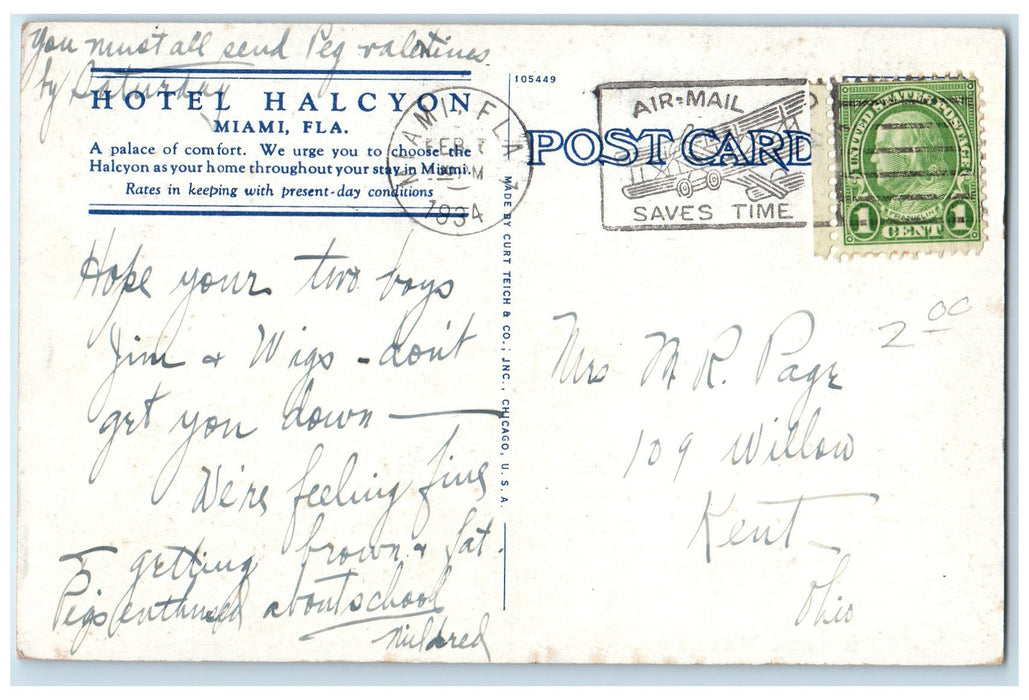 You must all send Peg valentines
by Saturday
HOTEL HALCYON
MIAMI, FLA.
A palace of comfort. We urge you to choose the
Halcyon as your home throughout your stay in Miami.
Rates in keeping with present-day conditions
Hope your two boys
Jim & Wigs - don't
get you down —
We're feeling fine
& getting brown & fat.
Peg's enthused about school
Mildred
105449
MADE BY CURT TEICH & CO., INC., CHICAGO, U. S. A.
MIAMI, FLA.
FEB 7
M
1934
AIR-MAIL
SAVES TIME
POST CARD
UNITED STATES POSTAGE
1 CENT 1
2 00
Mrs M. R. Page
109 Willow
Kent
Ohio